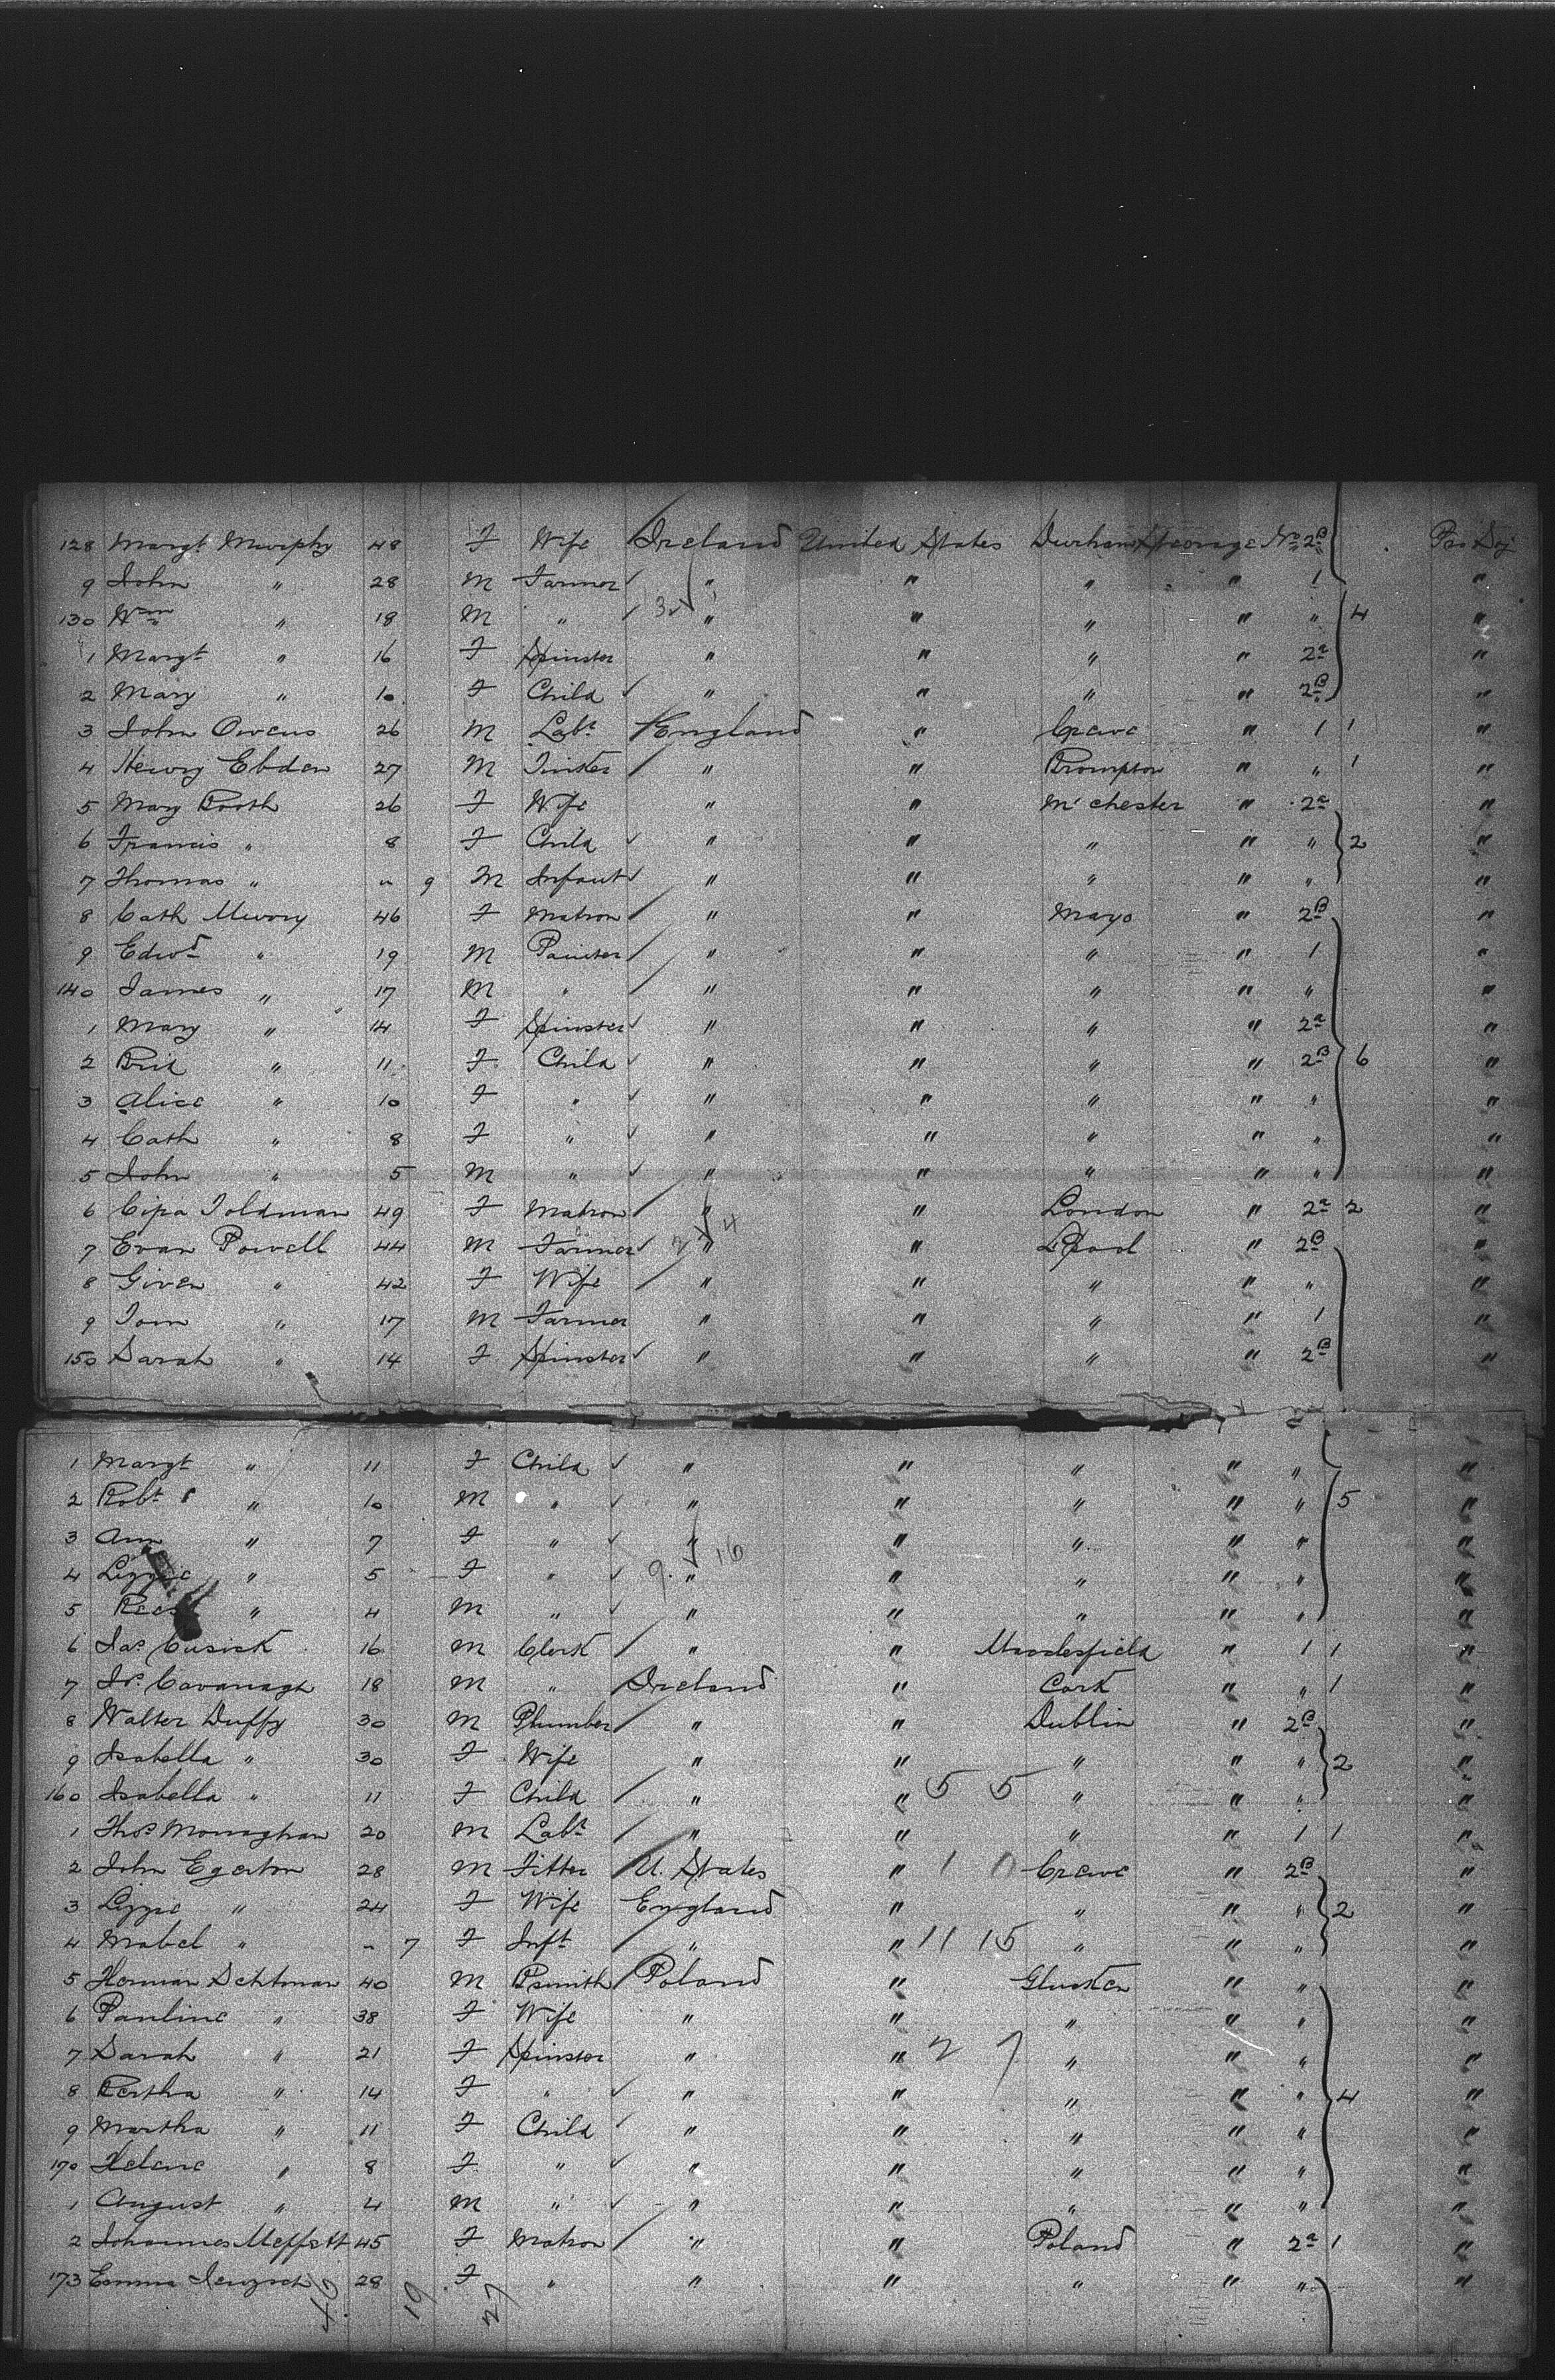 128 Margt Murphy 48 F Wife Ireland United States Durham Steerage No 2B Pro Soj
9 John " 28 M Farmer " " " " 1 "
130 Wm " 18 M " " " " " " 4 "
1 Margt " 16 F Spinster " " " " 2a "
2 Mary " 10 F Child " " " " 2B "
3 John Owens 26 M Labr England " Crewe " 1 1 "
4 Henry Ebden 27 M Tinker " " Brompton " " 1 "
5 Mary Booth 26 F Wife " " M'chester " 2a "
6 Francis " 8 F Child " " " " " 2 "
7 Thomas " " 9 M Infant " " " " " "
8 Cath 46 F Matron " " Mayo " 2B "
9 Edwd " 19 M Painter " " " " 1 "
140 James " 17 M " " " " " " "
1 Mary " 14 F Spinster " " " " 2a "
2 Brid " 11 F Child " " " " 2B 6 "
3 Alice " 10 F " " " " " " "
4 Cath " 8 F " " " " " " "
5 John " 5 M " " " " " " "
6 Cipa Toldman 49 F Matron " " London " 2a 2 "
7 Evan Powell 44 M Farmer " " L'pool " 2B "
8 Given " 42 F Wife " " " " " "
9 Tom " 17 M Farmer " " " " 1 "
150 Sarah " 14 F Spinster " " " " 2B "
1 Margt " 11 F Child " " " " " "
2 Robt " 10 M " " " " " " 5 "
3 Ann " 7 F " " " " " " "
4 Lizzie " 5 F " " " " " " "
5 Rees " 4 M " " " " " " "
6 Jas Cusick 16 M Clerk " " " 1 1 "
7 Js Cavanagh 18 M " Ireland " Cork " " 1 "
8 Walter Duffy 30 M Plumber " " Dublin " 2B "
9 Isabella " 30 F Wife " " " " " 2 "
160 Isabella " 11 F Child " " 5 5 " " " "
1 Thos Monaghan 20 M Labr " " " " 1 1 "
2 John Egerton 28 M Fitter U. States " 1 0 Crewe " 2B "
3 Lizzie " 24 F Wife England " " " " 2 "
4 Mabel " " 7 F Inft " " 11 15 " " " "
5 Herman 40 M Bsmith Poland " Glucken " " "
6 Pauline " 38 F Wife " " " " " "
7 Sarah " 21 F Spinster " " 2 7 " " " "
8 Bertha " 14 F " " " " " " 4 "
9 Martha " 11 F Child " " " " " "
170 Helene " 8 F " " " " " " "
1 August " 4 M " " " " " " "
2 Johannes 45 F Matron " " Poland " 2a 1 "
173 Emma 28 F " " " " " " "
19 27